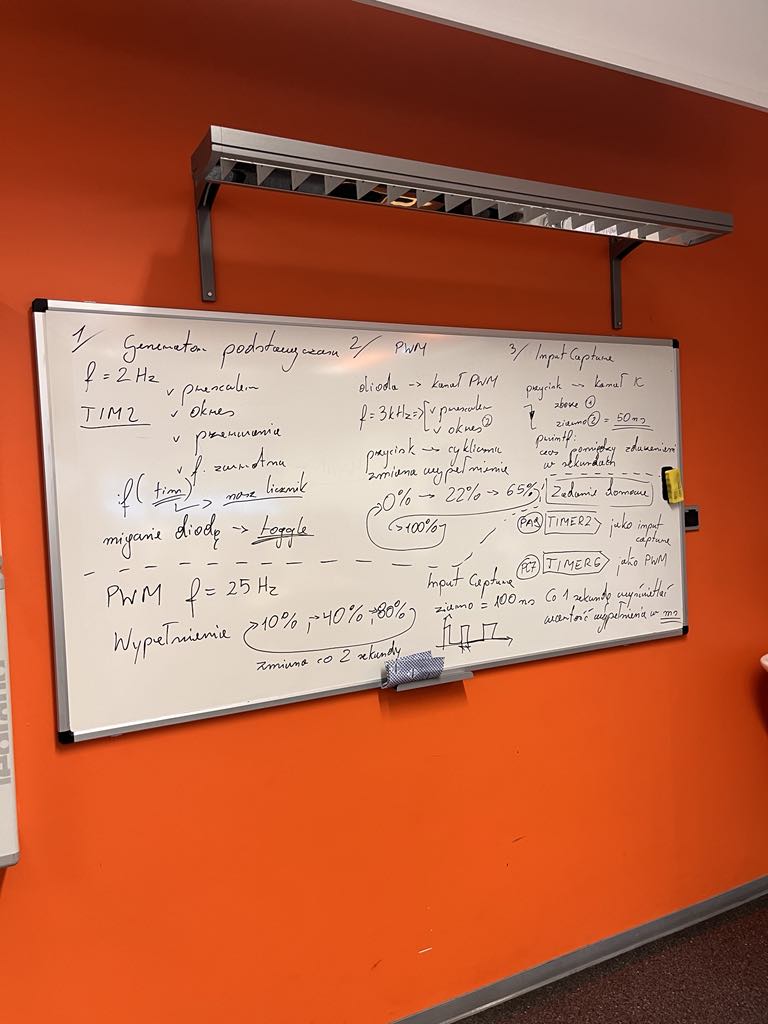 1/ Generator podstawy czasu
f = 2 Hz
TIM2
v prescaler
v okres
v przerwania
v f. zwrotna
if(tim) → nasz licznik
miganie diodą → toggle
2/ PWM
dioda → kanał PWM
f = 3kHz => v prescaler
v okres
przycisk → cykliczna
zmiana wypełnienie
0% → 22% → 65%
→ 100%
3/ Input Capture
przycisk → kanał IC
zbocze
ziarno = 50ns
printf:
czas pomiędzy zdarzeniami
w sekundach
Zadanie domowe
TIMER2 jako input
capture
PC7 TIMER6 jako PWM
PWM f = 25 Hz
Wypełnienie → 10% → 40% → 80%
zmiana co 2 sekundy
Input Capture
ziarno = 100 ns
Co 1 sekundę wyświetlać
wartość wypełnienia w ms